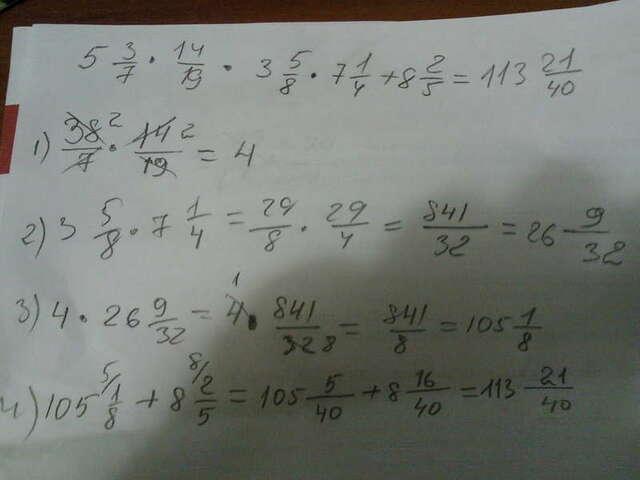 5 3/7 · 14/19 · 3 5/8 · 7 1/4 + 8 2/5 = 113 21/40
1) 38 2/7 · 14 2/19 = 4
2) 3 5/8 · 7 1/4 = 29/8 · 29/4 = 841/32 = 26 9/32
3) 4 · 26 9/32 = 4 1 · 841/32 8 = 841/8 = 105 1/8
4) 105 5/ 1/8 + 8 8/ 2/5 = 105 5/40 + 8 16/40 = 113 21/40